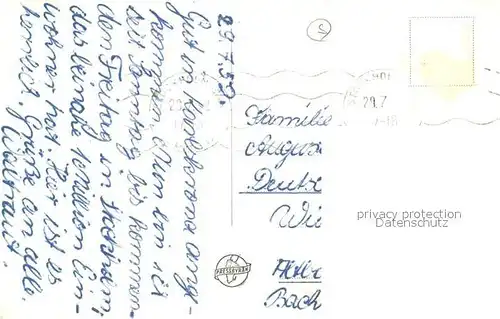 29.7.59.
Gut in Karlskrona ange-
kommen. Nun bin ich
seit Sonntag bis kommen-
den Freitag in Stockholm,
das beinahe 1 Million Ein-
wohner hat. Hier ist es
herrlich. Grüße an alle.
Waltraut.
Familie
August
Deuts
Wie
Bach
29.7
PRESSBYRÅN
privacy protection
Datenschutz